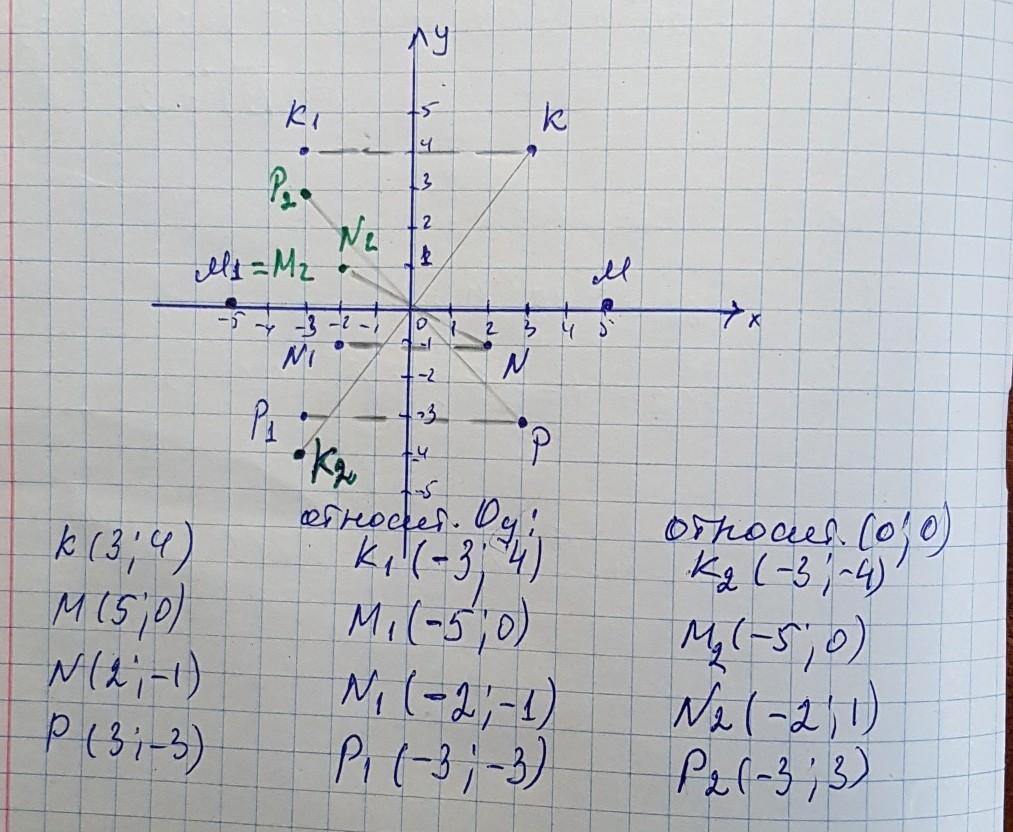 y
5
K1 K
4
P2 3
N2 2
M1 = M2 1 M
-5 -4 -3 -2 -1 0 1 2 3 4 5 x
N1 -1 N
-2
P1 -3 P
K2 -4
-5
относит. Oy: относит. (0;0)
K (3;4) K1 (-3; 4) K2 (-3;-4)
M (5;0) M1 (-5;0) M2 (-5;0)
N (2;-1) N1 (-2;-1) N2 (-2;1)
P (3;-3) P1 (-3;-3) P2 (-3;3)